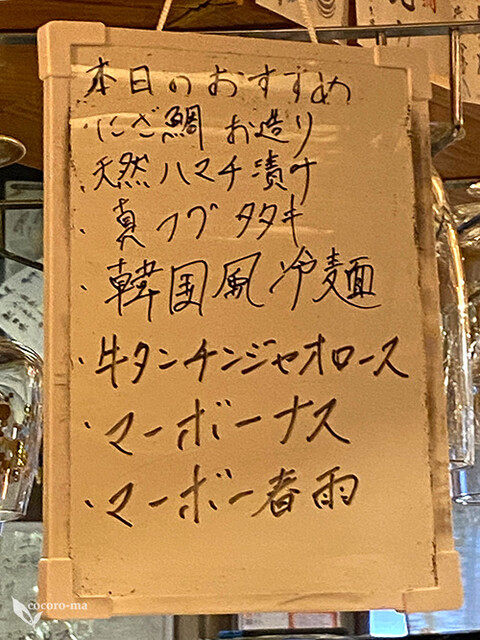 本日のおすすめ
・にざ鯛 お造り
・天然ハマチ漬け
・真フグタタキ
・韓国風冷麺
・牛タンチンジャオロース
・マーボーナス
・マーボー春雨
cocoro-ma